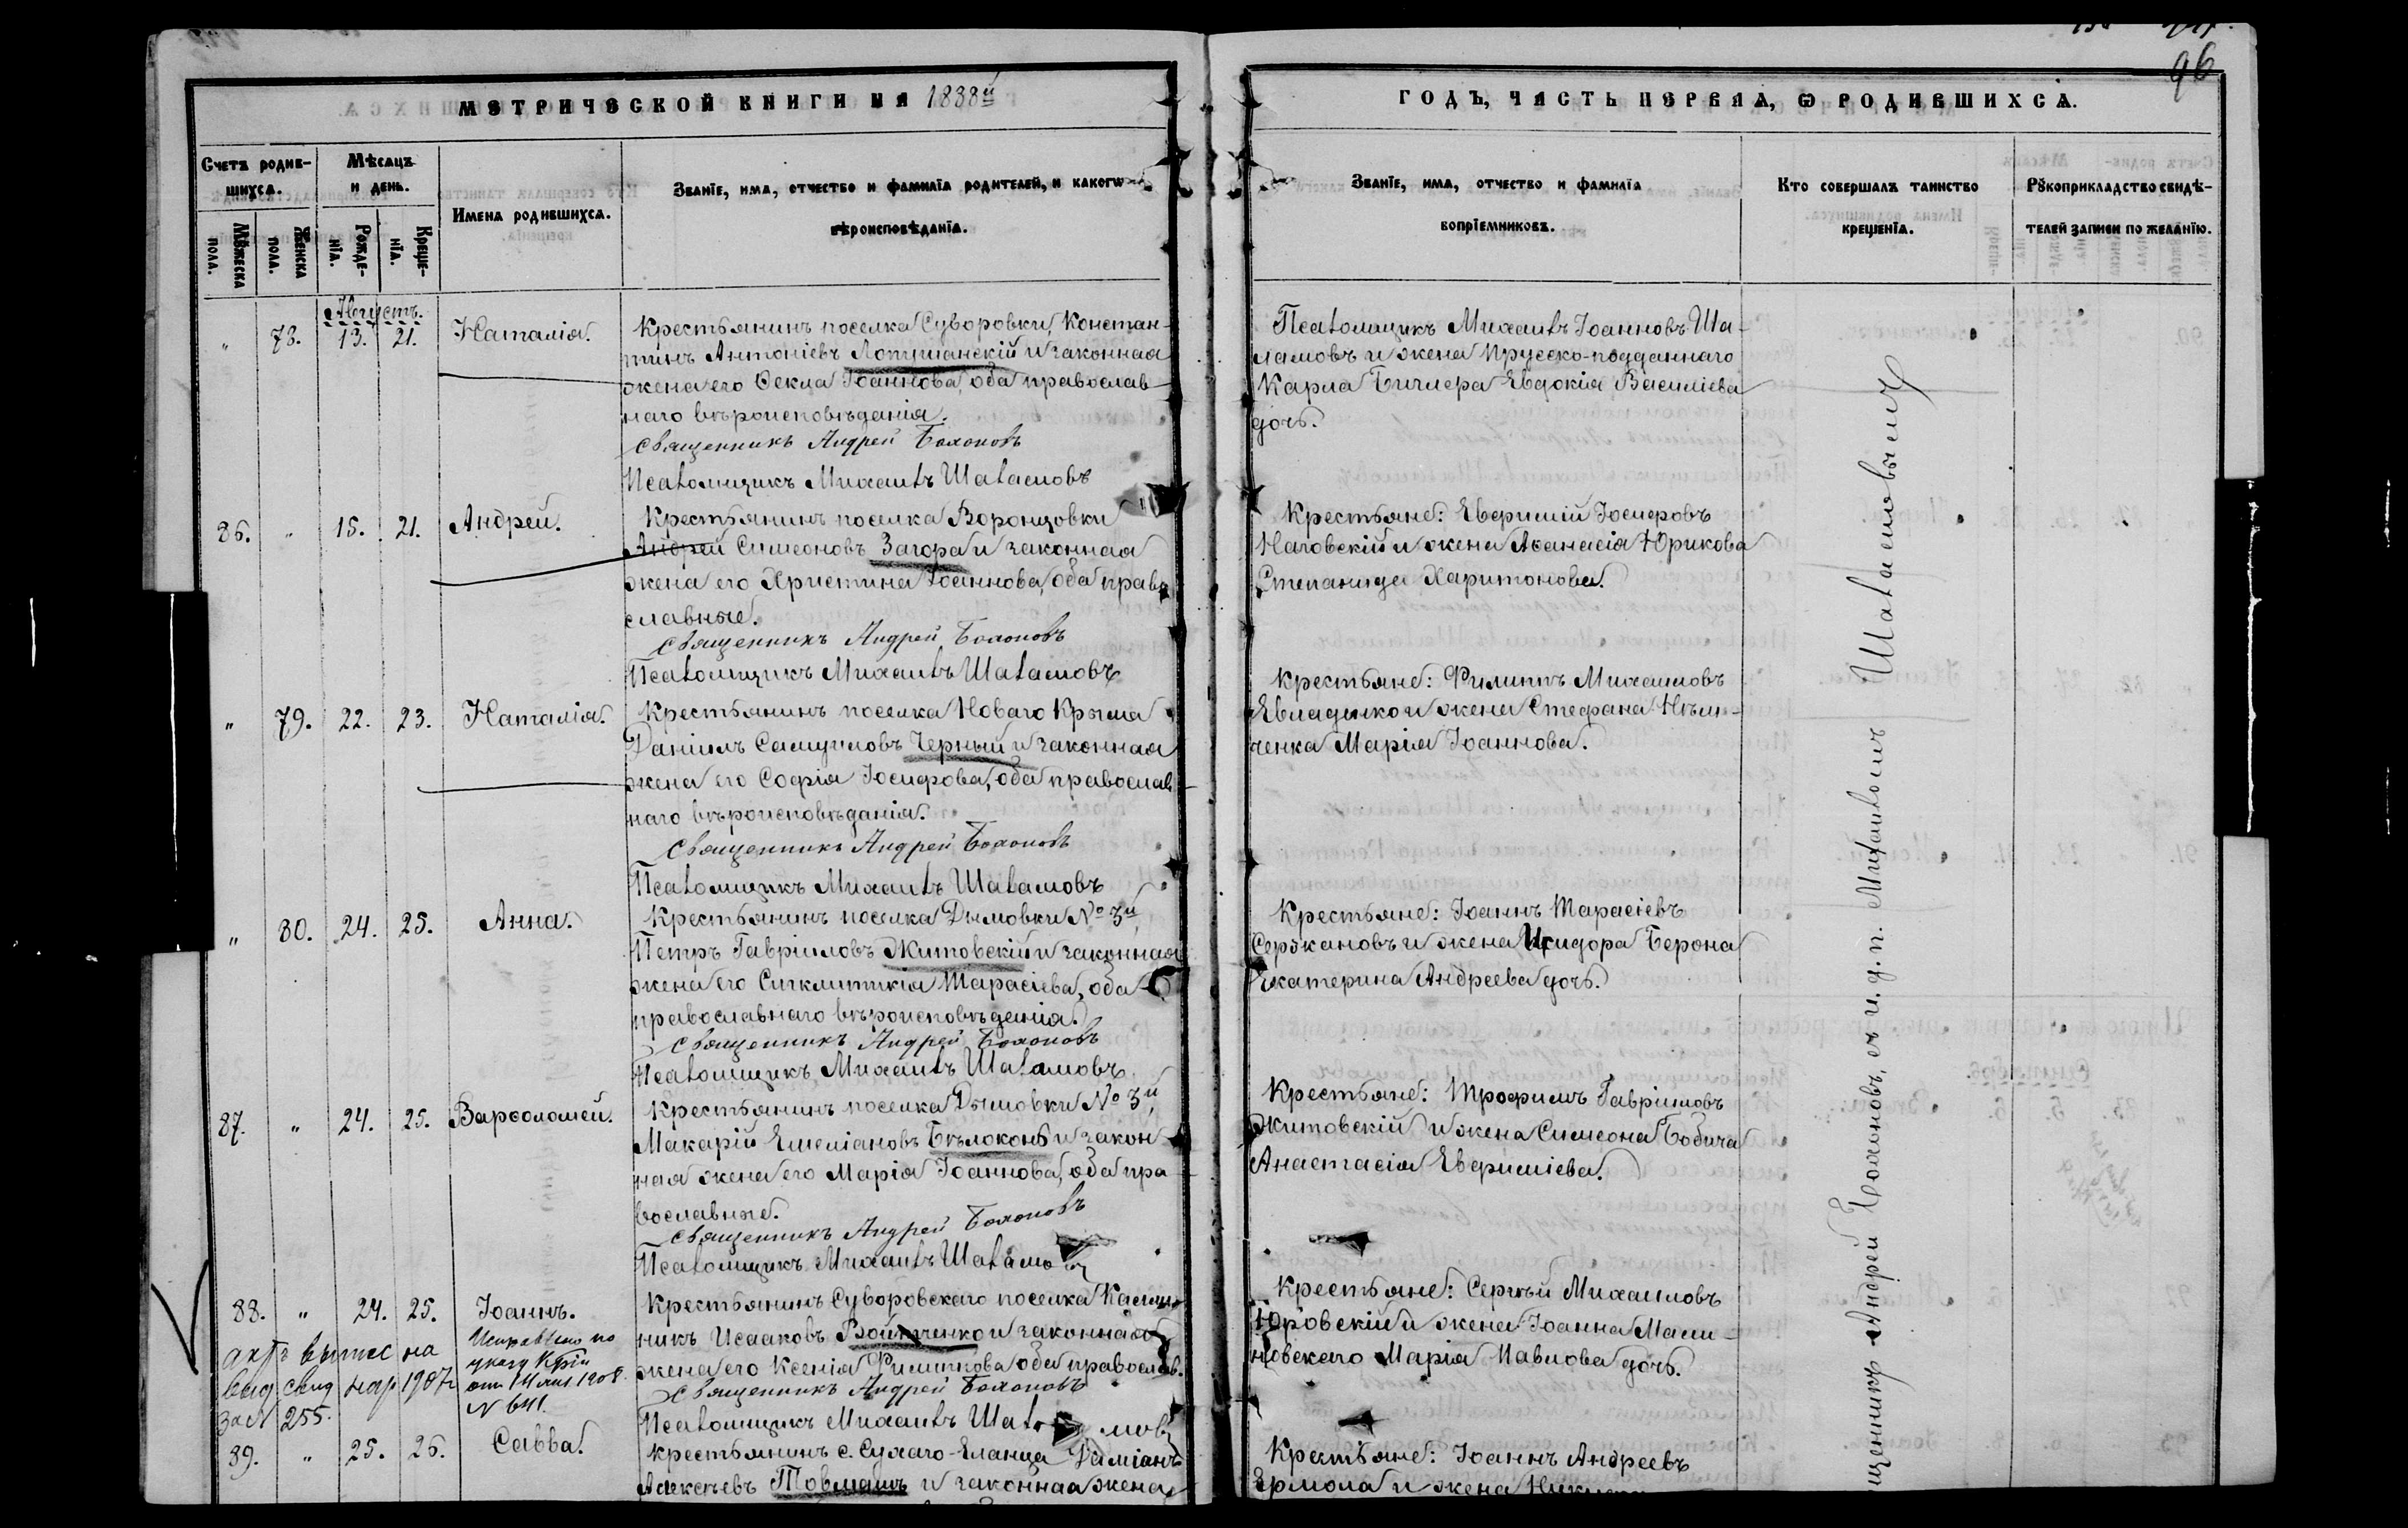 96
МЕТРИЧЕСКОЙ КНИГИ НА 1888й
ГОДЪ, ЧАСТЬ ПЕРВАЯ, Ѡ РОДИВШИХСЯ.
Счетъ родив-
шихся.
Мѣсяцъ
и день.
Мꙋжеска
пола.
Женска
пола.
Рожде-
нїя.
Креще-
нїя.
Имена родившихся.
Званїе, имя, отчество и фамилїя родителей, и какогѡ
вѣроисповѣданїя.
Званїе, имя, отчество и фамилїя
воспрїемниковъ.
Кто совершалъ таинство
крещенїя.
Рꙋкоприкладство свидѣ-
телей записи по желанїю.
Августъ.
" 78. 13. 21. Наталія.
Крестьянинъ поселка Суворовки Констан-
тинъ Антоніевъ Лотушанскій и законная
жена его Ѳекла Іоаннова, оба православ-
наго вѣроисповѣданія.
Священникъ Андрей Болоновъ
Псаломщикъ Михаилъ Шаламовъ
Псаломщикъ Михаилъ Іоанновъ Ша-
ламовъ и жена Прусско-подданнаго
Карла Бичлера Евдокія Василіева
дочь.
86. " 15. 21. Андрей.
Крестьянинъ поселка Воронцовки
Андрей Симеоновъ Загора и законная
жена его Христина Іоаннова, оба право
славные.
Священникъ Андрей Болоновъ
Псаломщикъ Михаилъ Шаламовъ
Крестьяне: Евфимій Іосифовъ
Наговскій и жена Аѳанасія Юрикова
Степанида Харитонова.
" 79. 22. 23. Наталія.
Крестьянинъ поселка Новаго Крыма
Даніилъ Самуиловъ Черный и законная
жена его Софія Іосифова, оба православ-
наго вѣроисповѣданія.
Священникъ Андрей Болоновъ
Псаломщикъ Михаилъ Шаламовъ
Крестьяне: Филиппъ Михаиловъ
Евладенко и жена Стефана Нѣм-
ченка Марія Іоаннова.
" 80. 24. 25. Анна.
Крестьянинъ поселка Дымовки № 3й,
Петръ Гавріиловъ Житовскій и законная
жена его Синклитикія Тарасіева, оба
православнаго вѣроисповѣденія.
Священникъ Андрей Болоновъ
Псаломщикъ Михаилъ Шаламовъ
Крестьяне: Іоаннъ Тарасіевъ
Сержановъ и жена Исидора Берона
Екатерина Андреева дочь.
87. " 24. 25. Варѳоломей.
Крестьянинъ поселка Дымовки № 3й,
Макарій Емеліановъ Бѣлоконь и закон-
ная жена его Марія Іоаннова, оба пра-
вославные.
Священникъ Андрей Болоновъ
Псаломщикъ Михаилъ Шаламовъ
Крестьяне: Трофимъ Гавріиловъ
Житовскій и жена Симеона Бобича
Анастасія Евфиміева.
88. " 24. 25. Іоаннъ.
Исправлено по
указу Кон
отъ 14 1908
N 641.
актъ выпис на
выд свид мар 1907
за N 255.
Крестьянинъ Суворовскаго поселка Каллин-
никъ Исааковъ Войтченко и законная
жена его Ксенія Филиппова оба православ.
Священникъ Андрей Болоновъ
Псаломщикъ Михаилъ Шаламовъ
Крестьяне: Сергѣй Михаиловъ
Юровскій и жена Іоанна Мали-
новскаго Марія Павлова дочь.
89. " 25. 26. Савва.
Крестьянинъ с. Сухаго-Еланца Даміанъ
Алексѣевъ Товмашъ и законная жена
Крестьяне: Іоаннъ Андреевъ
Ермола и жена
щенникъ Андрей Болоновъ, съ и. д. п. Михаиломъ Шаламовымъ